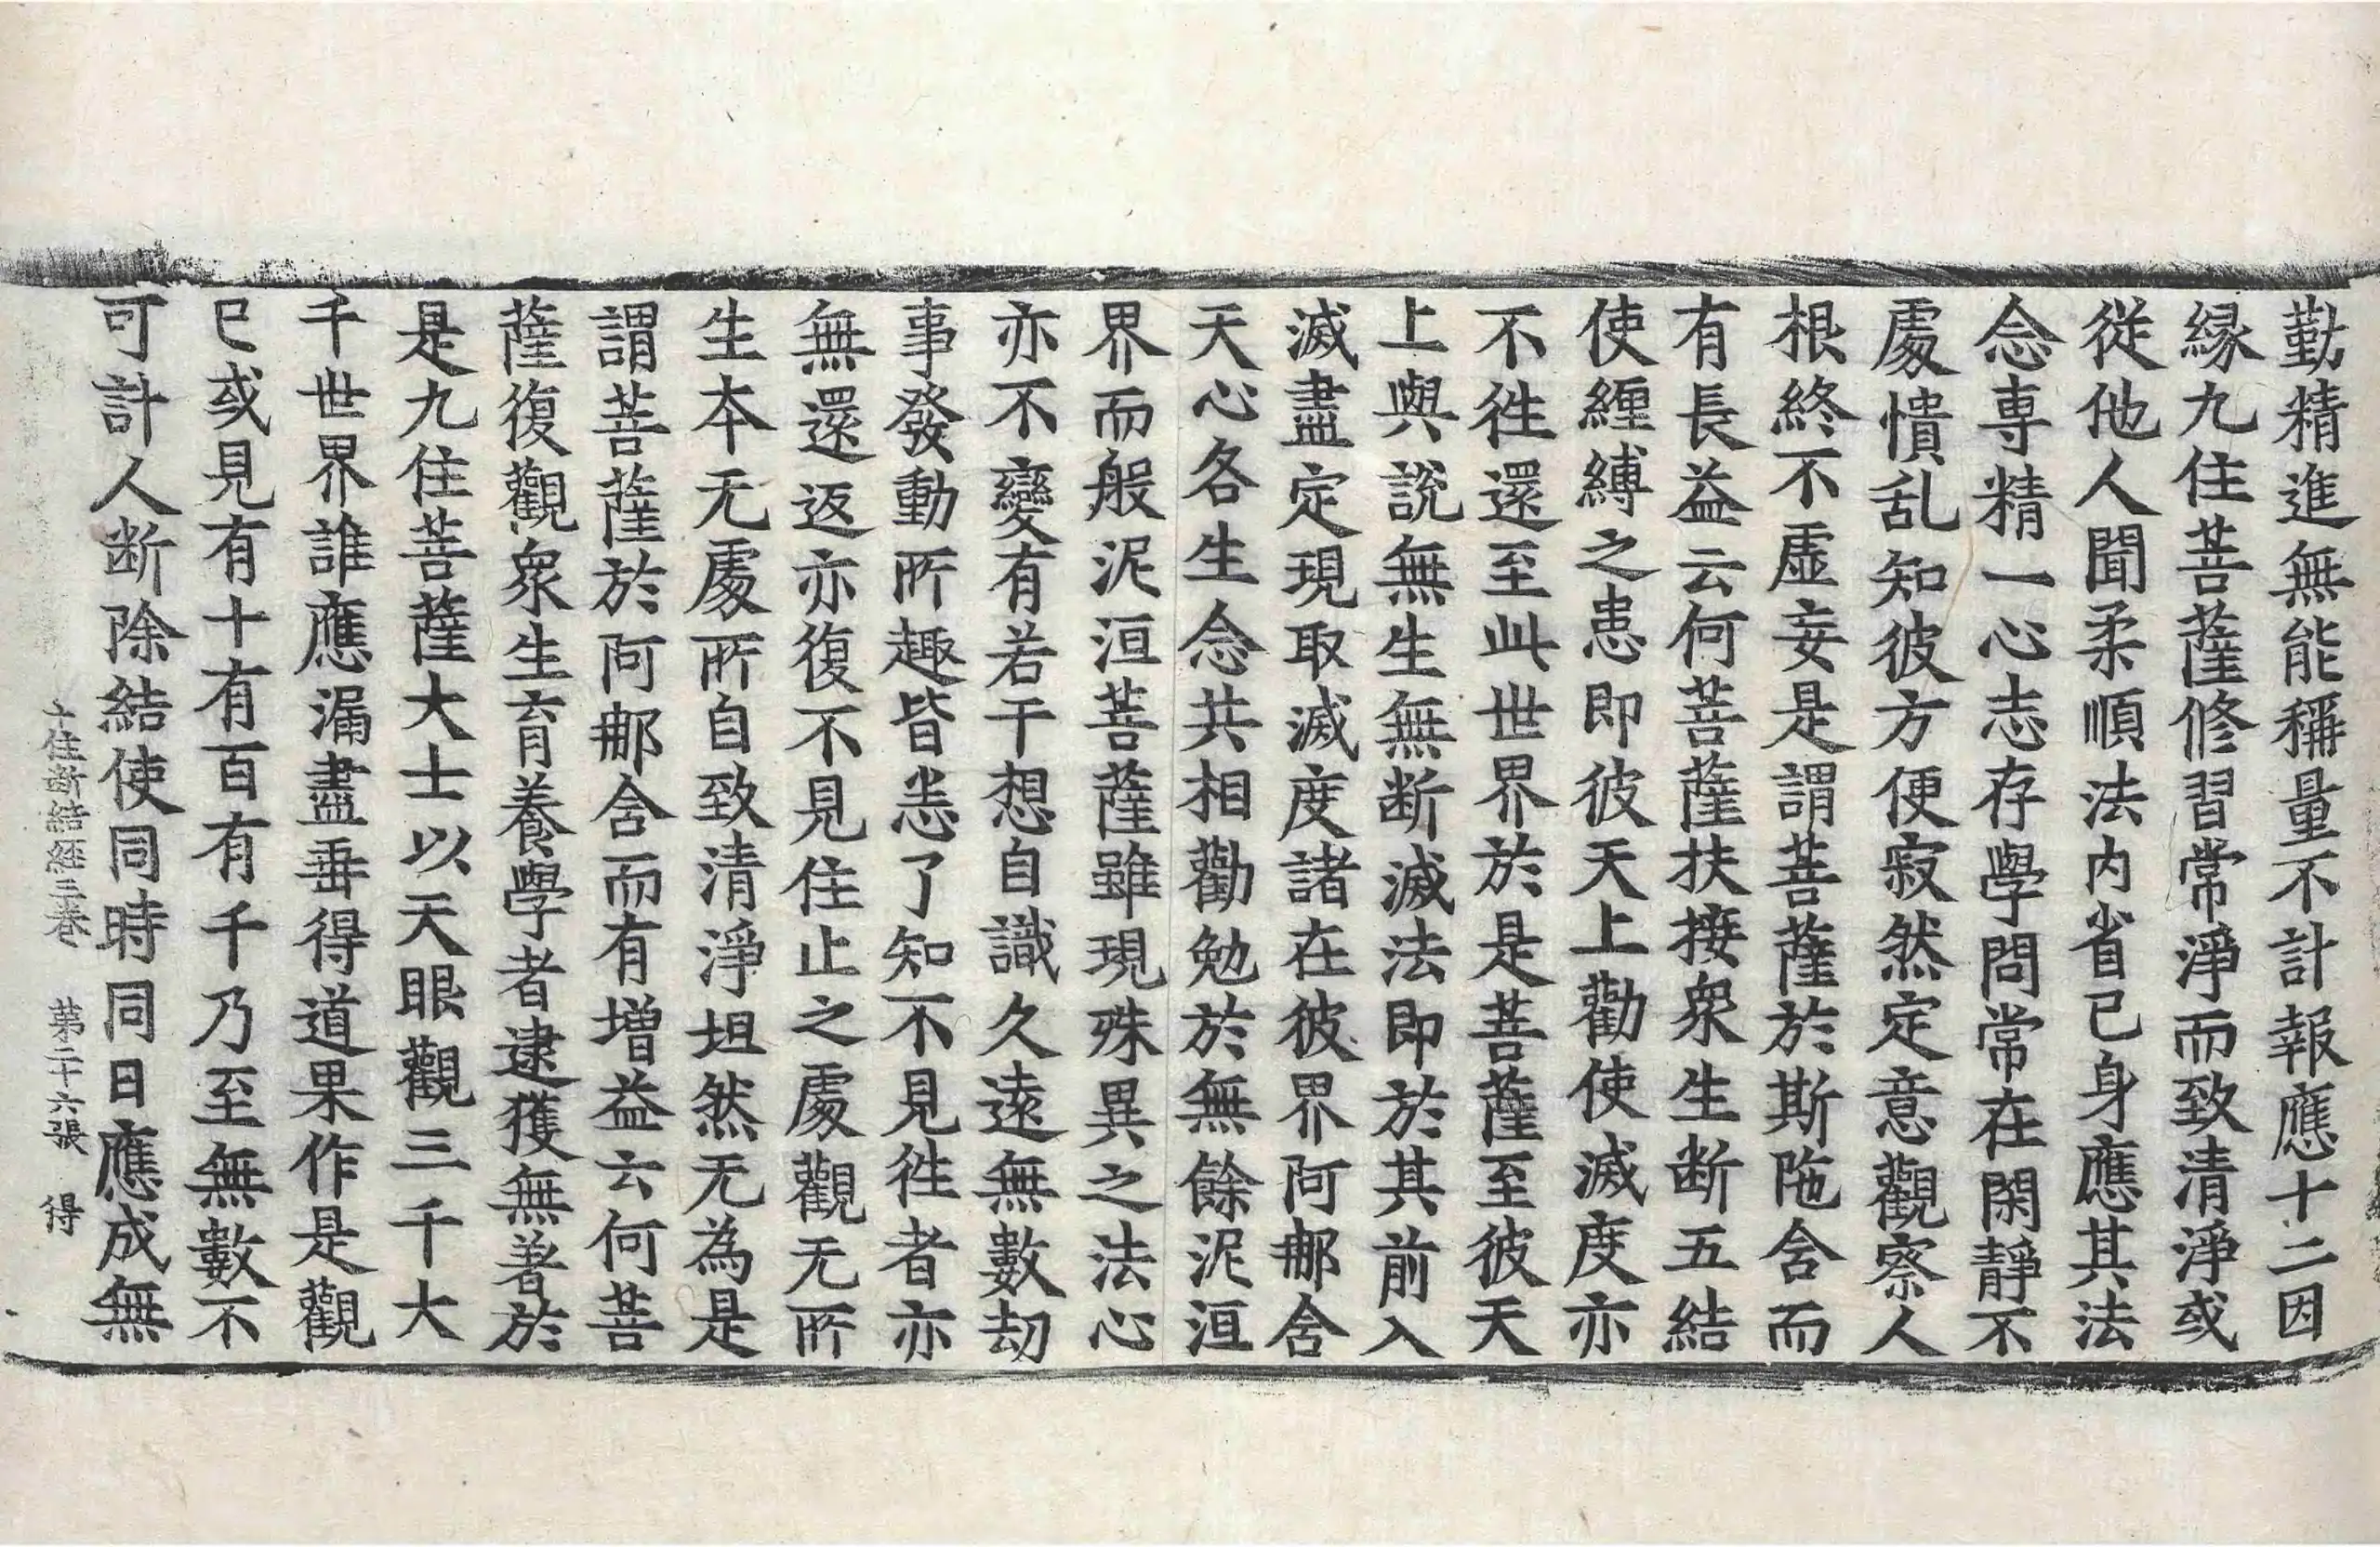 勤精進無能稱量不計報應十二因
緣九住菩薩修習常淨而致清淨或
從他人聞柔順法内省已身應其法
念専精一心志存學問常在閑靜不
處憒乱知彼方便寂然定意觀察人
根終不虛妄是謂菩薩於斯陁舍而
有長益云何菩薩扶接衆生断五結
使纏縛之患即彼天上勸使滅度亦
不徃還至此世界於是菩薩至彼天
上與說無生無断滅法即於其前入
滅盡定現取滅度諸在彼界阿那舍
天心各生念共相勸勉於無餘泥洹
界而般泥洹菩薩雖現殊異之法心
亦不變有若干想自識久遠無數劫
事發動所趣皆悉了知不見徃者亦
無還返亦復不見住止之處觀无所
生本无處所自致清淨坦然无為是
謂菩薩於阿那舍而有增益云何菩
薩復觀衆生育養學者逮獲無著於
是九住菩薩大士以天眼觀三千大
千世界誰應漏盡垂得道果作是觀
已或見有十有百有千乃至無數不
可計人断除結使同時同日應成無
十住断結經三卷　第二十六張　得